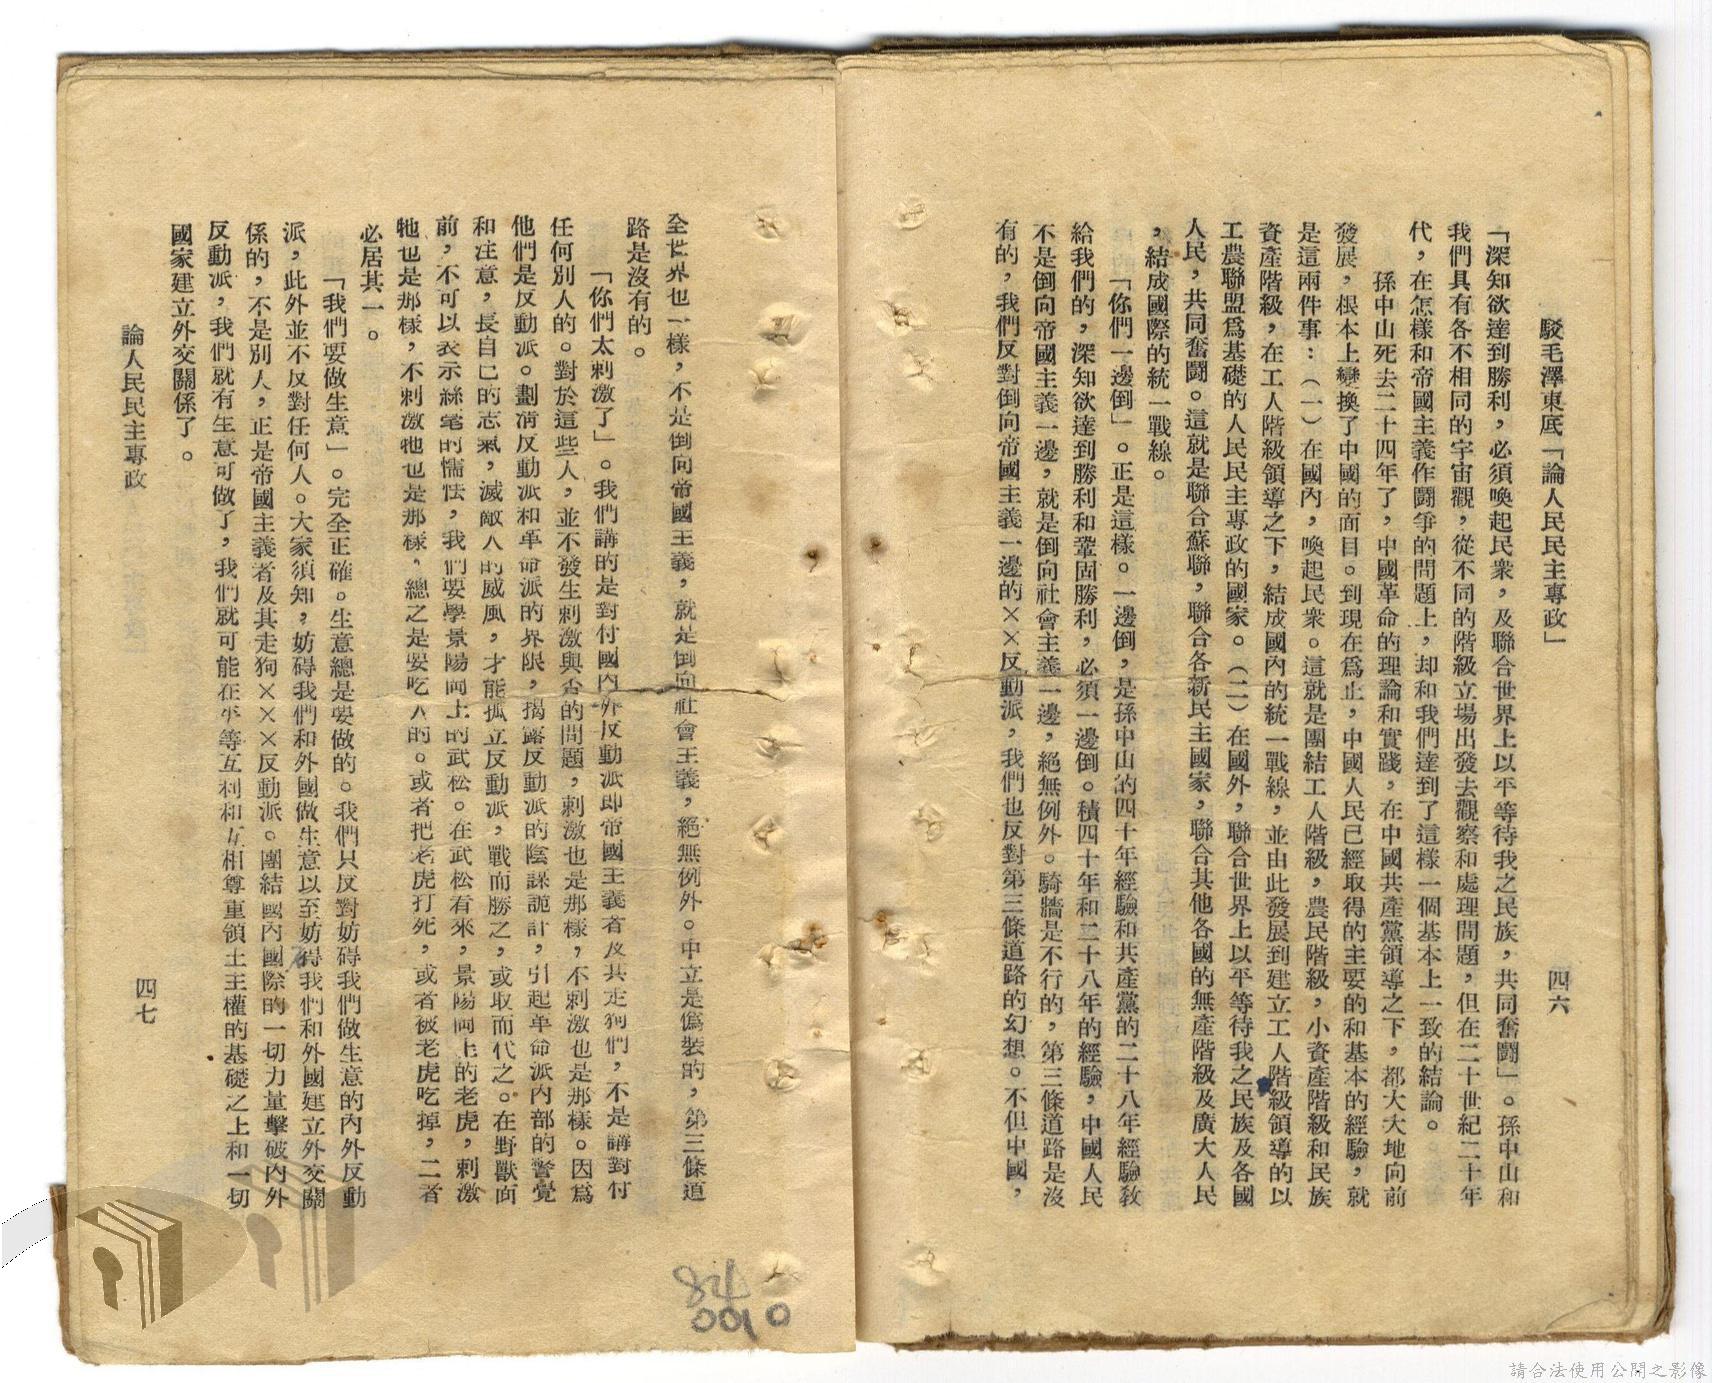 駁毛澤東底「論人民民主專政」
四六
「深知欲達到勝利，必須喚起民衆，及聯合世界上以平等待我之民族，共同奮鬪」。孫中山和
我們具有各不相同的宇宙觀，從不同的階級立場出發去觀察和處理問題，但在二十世紀二十年
代，在怎樣和帝國主義作鬪爭的問題上，却和我們達到了這樣一個基本上一致的結論。
孫中山死去二十四年了，中國革命的理論和實踐，在中國共產黨領導之下，都大大地向前
發展，根本上變換了中國的面目。到現在爲止，中國人民已經取得的主要的和基本的經驗，就
是這兩件事：（一）在國內，喚起民衆。這就是團結工人階級，農民階級，小資產階級和民族
資產階級，在工人階級領導之下，結成國內的統一戰線，並由此發展到建立工人階級領導的以
工農聯盟爲基礎的人民民主專政的國家。（二）在國外，聯合世界上以平等待我之民族及各國
人民，共同奮鬪。這就是聯合蘇聯，聯合各新民主國家，聯合其他各國的無產階級及廣大人民
，結成國際的統一戰線。
「你們一邊倒」。正是這樣。一邊倒，是孫中山的四十年經驗和共產黨的二十八年經驗敎
給我們的，深知欲達到勝利和鞏固勝利，必須一邊倒。積四十年和二十八年的經驗，中國人民
不是倒向帝國主義一邊，就是倒向社會主義一邊，絕無例外。騎牆是不行的，第三條道路是沒
有的，我們反對倒向帝國主義一邊的××反動派，我們也反對第三條道路的幻想。不但中國，
全世界也一樣，不是倒向帝國主義，就是倒向社會主義，絕無例外。中立是僞裝的，第三條道
路是沒有的。
「你們太刺激了」。我們講的是對付國內外反動派即帝國主義者及其走狗們，不是講對付
任何別人的。對於這些人，並不發生刺激與否的問題，刺激也是那樣，不刺激也是那樣。因爲
他們是反動派。劃清反動派和革命派的界限，揭露反動派的陰謀詭計，引起革命派內部的警覺
和注意，長自己的志氣，滅敵人的威風，才能孤立反動派，戰而勝之，或取而代之。在野獸面
前，不可以表示絲毫的懦怯，我們要學景陽岡上的武松。在武松看來，景陽岡上的老虎，刺激
牠也是那樣，不刺激牠也是那樣，總之是要吃人的。或者把老虎打死，或者被老虎吃掉，二者
必居其一。
「我們要做生意」。完全正確。生意總是要做的。我們只反對妨碍我們做生意的內外反動
派，此外並不反對任何人。大家須知，妨碍我們和外國做生意以至妨碍我們和外國建立外交關
係的，不是別人，正是帝國主義者及其走狗×××反動派。團結國內國際的一切力量擊破內外
反動派，我們就有生意可做了，我們就可能在平等互利和互相尊重領土主權的基礎之上和一切
國家建立外交關係了。
論人民民主專政
四七
0010
請合法使用公開之影像